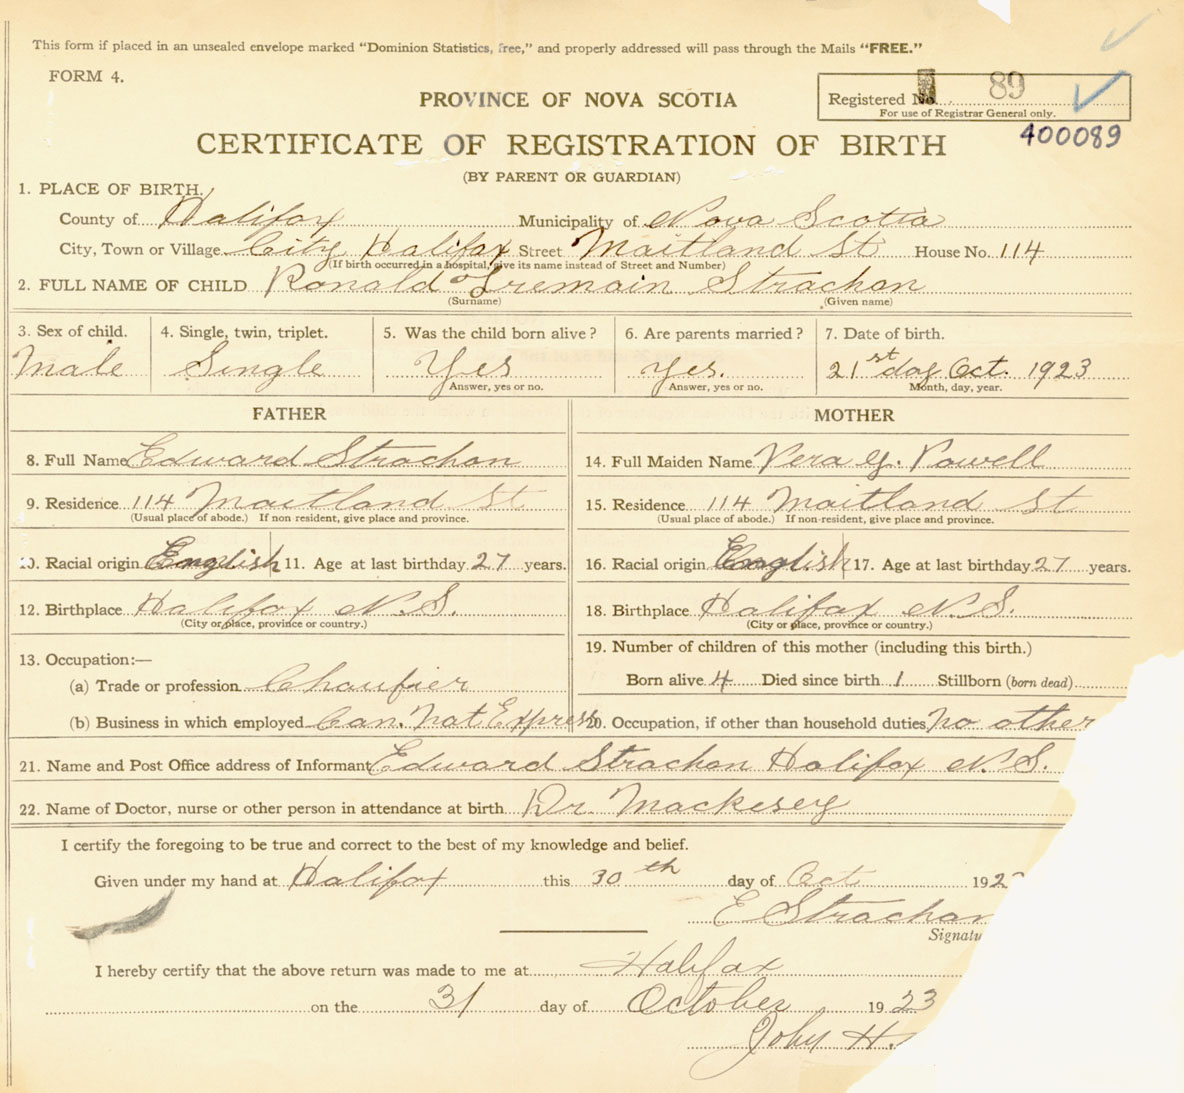 This form if placed in an unsealed envelope marked "Dominion Statistics, free," and properly addressed will pass through the Mails "FREE."
FORM 4.
Registered No. 89
For use of Registrar General only.
400089
PROVINCE OF NOVA SCOTIA
CERTIFICATE OF REGISTRATION OF BIRTH
(BY PARENT OR GUARDIAN)
1. PLACE OF BIRTH.
County of Halifax Municipality of Nova Scotia
City, Town or Village City Halifax Street Maitland St House No. 114
(If birth occurred in a hospital, give its name instead of Street and Number)
2. FULL NAME OF CHILD Ronald Tremain Strachan
(Surname) (Given name)
3. Sex of child. 4. Single, twin, triplet. 5. Was the child born alive? 6. Are parents married? 7. Date of birth.
Male Single Yes Yes. 21st day Oct. 1923
Answer, yes or no. Answer, yes or no. Month, day, year.
FATHER MOTHER
8. Full Name Edward Strachan 14. Full Maiden Name Vera G. Powell
9. Residence 114 Maitland St 15. Residence 114 Maitland St
(Usual place of abode.) If non resident, give place and province. (Usual place of abode.) If non-resident, give place and province.
10. Racial origin English 11. Age at last birthday 27 years. 16. Racial origin English 17. Age at last birthday 27 years.
12. Birthplace Halifax N.S. 18. Birthplace Halifax N.S.
(City or place, province or country.) (City or place, province or country.)
13. Occupation:— 19. Number of children of this mother (including this birth.)
(a) Trade or profession Chaufier Born alive 4 Died since birth 1 Stillborn (born dead)
(b) Business in which employed Can. Nat Express 20. Occupation, if other than household duties no other
21. Name and Post Office address of Informant Edward Strachan Halifax N.S.
22. Name of Doctor, nurse or other person in attendance at birth Dr. Mackesey
I certify the foregoing to be true and correct to the best of my knowledge and belief.
Given under my hand at Halifax this 30th day of Oct 192
E Strachan
Signatu
I hereby certify that the above return was made to me at Halifax
on the 31 day of October 1923
John H.